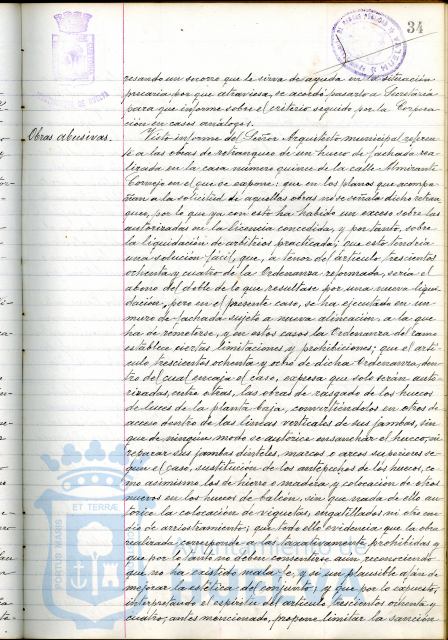 34
resando un socorro que le sirva de ayuda en la situación
precaria por que atraviesa, se acordó pasarlo a Secretaría
para que informe sobre el criterio seguido por la Corpora-
ción en casos análogos.
Obras abusivas.
Visto informe del Señor Arquitecto municipal referen-
te a las obras de retranqueo de un hueco de fachada rea-
lizada en la casa número quince de la calle Almirante
Cornejo en el que se expone: que en los planos que acompa-
ñan a la solicitud de aquellas obras no se señala dicho retran-
queo, por lo que ya con esto ha habido un exceso sobre las
autorizadas en la licencia concedida, y por tanto, sobre
la liquidación de arbitrios practicada; que esto tendría
una solución fácil, que, a tenor del artículo trescientos
ochenta y cuatro de la Ordenanza reformada, sería el
abono del doble de lo que resultase por una nueva liqui-
dación, pero en el presente caso, se ha ejecutado en un
muro de fachada sujeto a nueva alineación, a la que
ha de remeterse, y en estos casos la Ordenanza del ramo
establece ciertas limitaciones y prohibiciones; que el artí-
culo trescientos ochenta y ocho de dicha Ordenanza, den-
tro del cual encaja el caso, expresa que solo serán auto-
rizadas, entre otras, las obras de rasgado de los huecos
de luces de la planta baja, convirtiéndolos en otros de
acceso dentro de las líneas verticales de sus jambas, sin
que de ningún modo se autorice ensanchar el hueco, ni
reparar sus jambas dinteles, marcos o arcos superiores se-
gún el caso, sustitución de los antepechos de los huecos, co-
mo asimismo los de hierro o madera, y colocación de otros
nuevos en los huecos de balcón, sin que nada de ello au-
torice la colocación de viguetas, engatillados ni otro me-
dio de arriostramiento; que todo ello evidencia que la obra
realizada corresponde a las taxativamente prohibidas y
que por lo tanto no deben consentirse aun reconociendo
que no ha existido mala fe, y sí un plausible afán de
mejorar la estética del conjunto; y que por lo expuesto,
interpretando el espíritu del artículo trescientos ochenta y
cuatro, antes mencionado, propone limitar la sanción
PORTUS MARIS ET TERRÆ
Ayuntamiento de